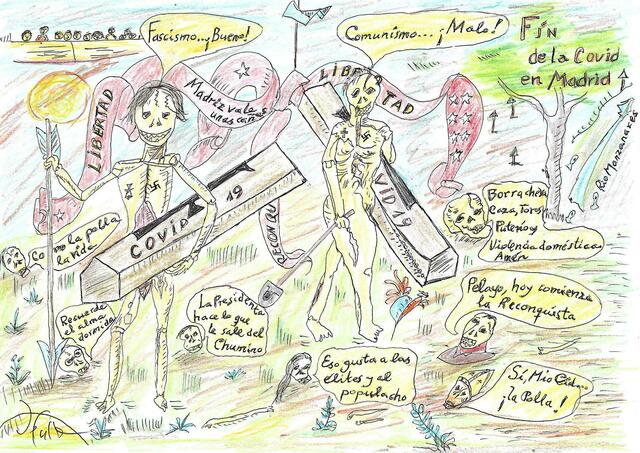 Fascismo...¡Bueno!
Comunismo... ¡Malo!
Fin
de la Covid
en Madrid
LIBERTAD
Madriz vale
unas cañas
LIBERTAD
Rio Manzanares
COVID 19
VID 19
RECONQU
Borrachera
Caza, Toros
Puterio y
Violencia doméstica
Amén
Como la polla
la vida
Recuerde
el alma
dormida
La Presidenta
hace lo que
le sale del
Chumino
Eso gusta a las
élites y al
populacho
Pelayo, hoy comienza
la Reconquista
Sí, Mio Cid
¡la Polla!